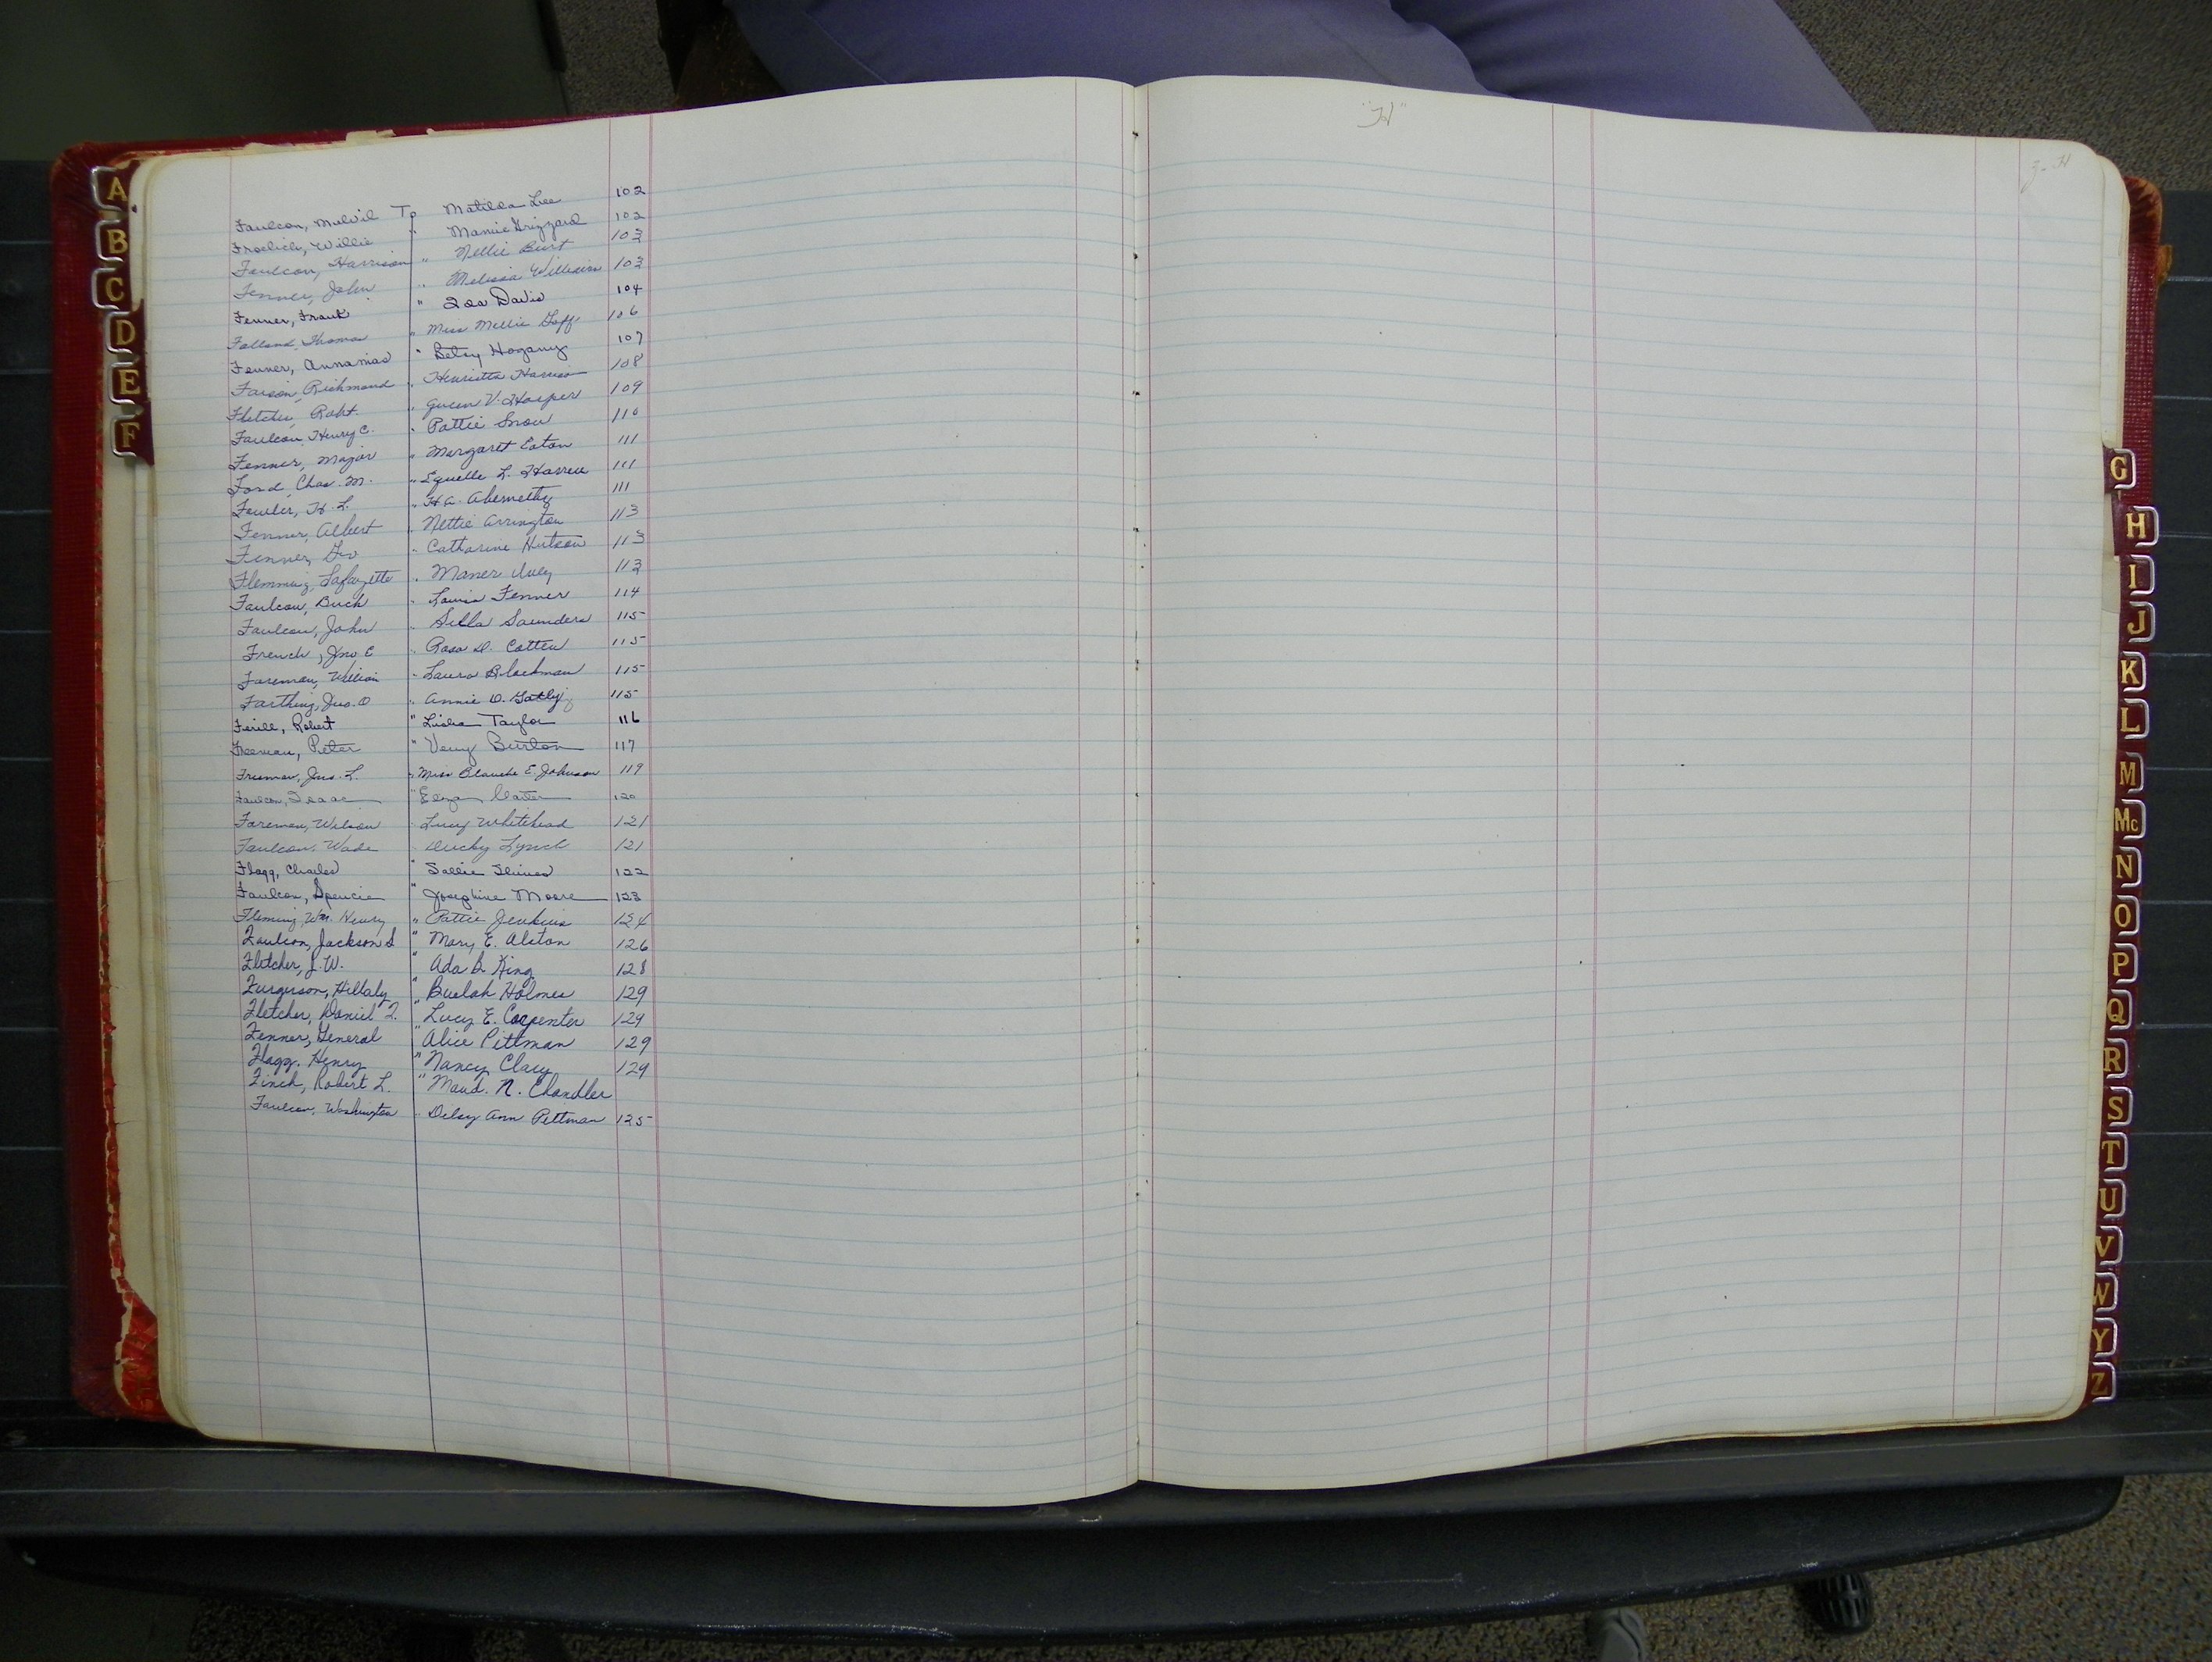 Faulcon, Melvil To Matilda Lee 102
Froelich, Willie " Mamie Grizzard 102
Faulcon, Harrison " Nellie Burt 103
Fenner, John " Melissa Williams 103
Fenner, Frank " Ida Davis 104
Thomas " Miss Mollie Goff 106
Fenner, Annanias " Betsy Hogany 107
Faison, Richmond " Henrietta Harriso 108
Fletcher, Robt. " Queen V. Harper 109
Faulcon, Henry C. " Pattie Snow 110
Fenner, Major " Margaret Eaton 111
Ford, Chas. M. " L. Harrell 111
Fowler, H. L. " H.A. Abernethy 111
Fenner, Albert " Nettie Arrington 113
Fenner, Geo " Catharine Hutson 113
Flemming, Lafayette " Maner 113
Faulcon, Buck " Louisa Fenner 114
Faulcon, John " Silla Saunders 115
French, Jno E " Rosa D. Cotten 115
Foreman, William " Laura Blackman 115
Farthing, Jno. O " Annie D. 115
Ferill, Robert " Taylor 116
Freeman, Peter " Burton 117
Freeman, Jno. L. " Miss Blanche E. Johnson 119
Faulcon, Isaac " Eliza 120
Foreman, Wilson " Lucy Whitehead 121
Faulcon, Wade " Ducky Lynch 121
Flagg, Charles " Sallie 122
Faulcon, Spencie " Josephine Moore 123
Fleming, Wm. Henry " Pattie Jenkins 124
Faulcon, Jackson S " Mary E. Alston 126
Fletcher, J. W. " Ada B. King 128
Furgurson, Hillaly " Buelah Holmes 129
Fletcher, Daniel F. " Lucy E. Carpenter 129
Fenner, General " Alice Pittman 129
Flagg, Henry " Nancy Clary 129
Finch, Robert L. " Maud. N. Chandler
Faulcon, Washington " Delsy Ann Pittman 125
A
B
C
D
E
F
G
H
I
J
K
L
M
Mc
N
O
P
Q
R
S
T
U
V
W
Y
Z